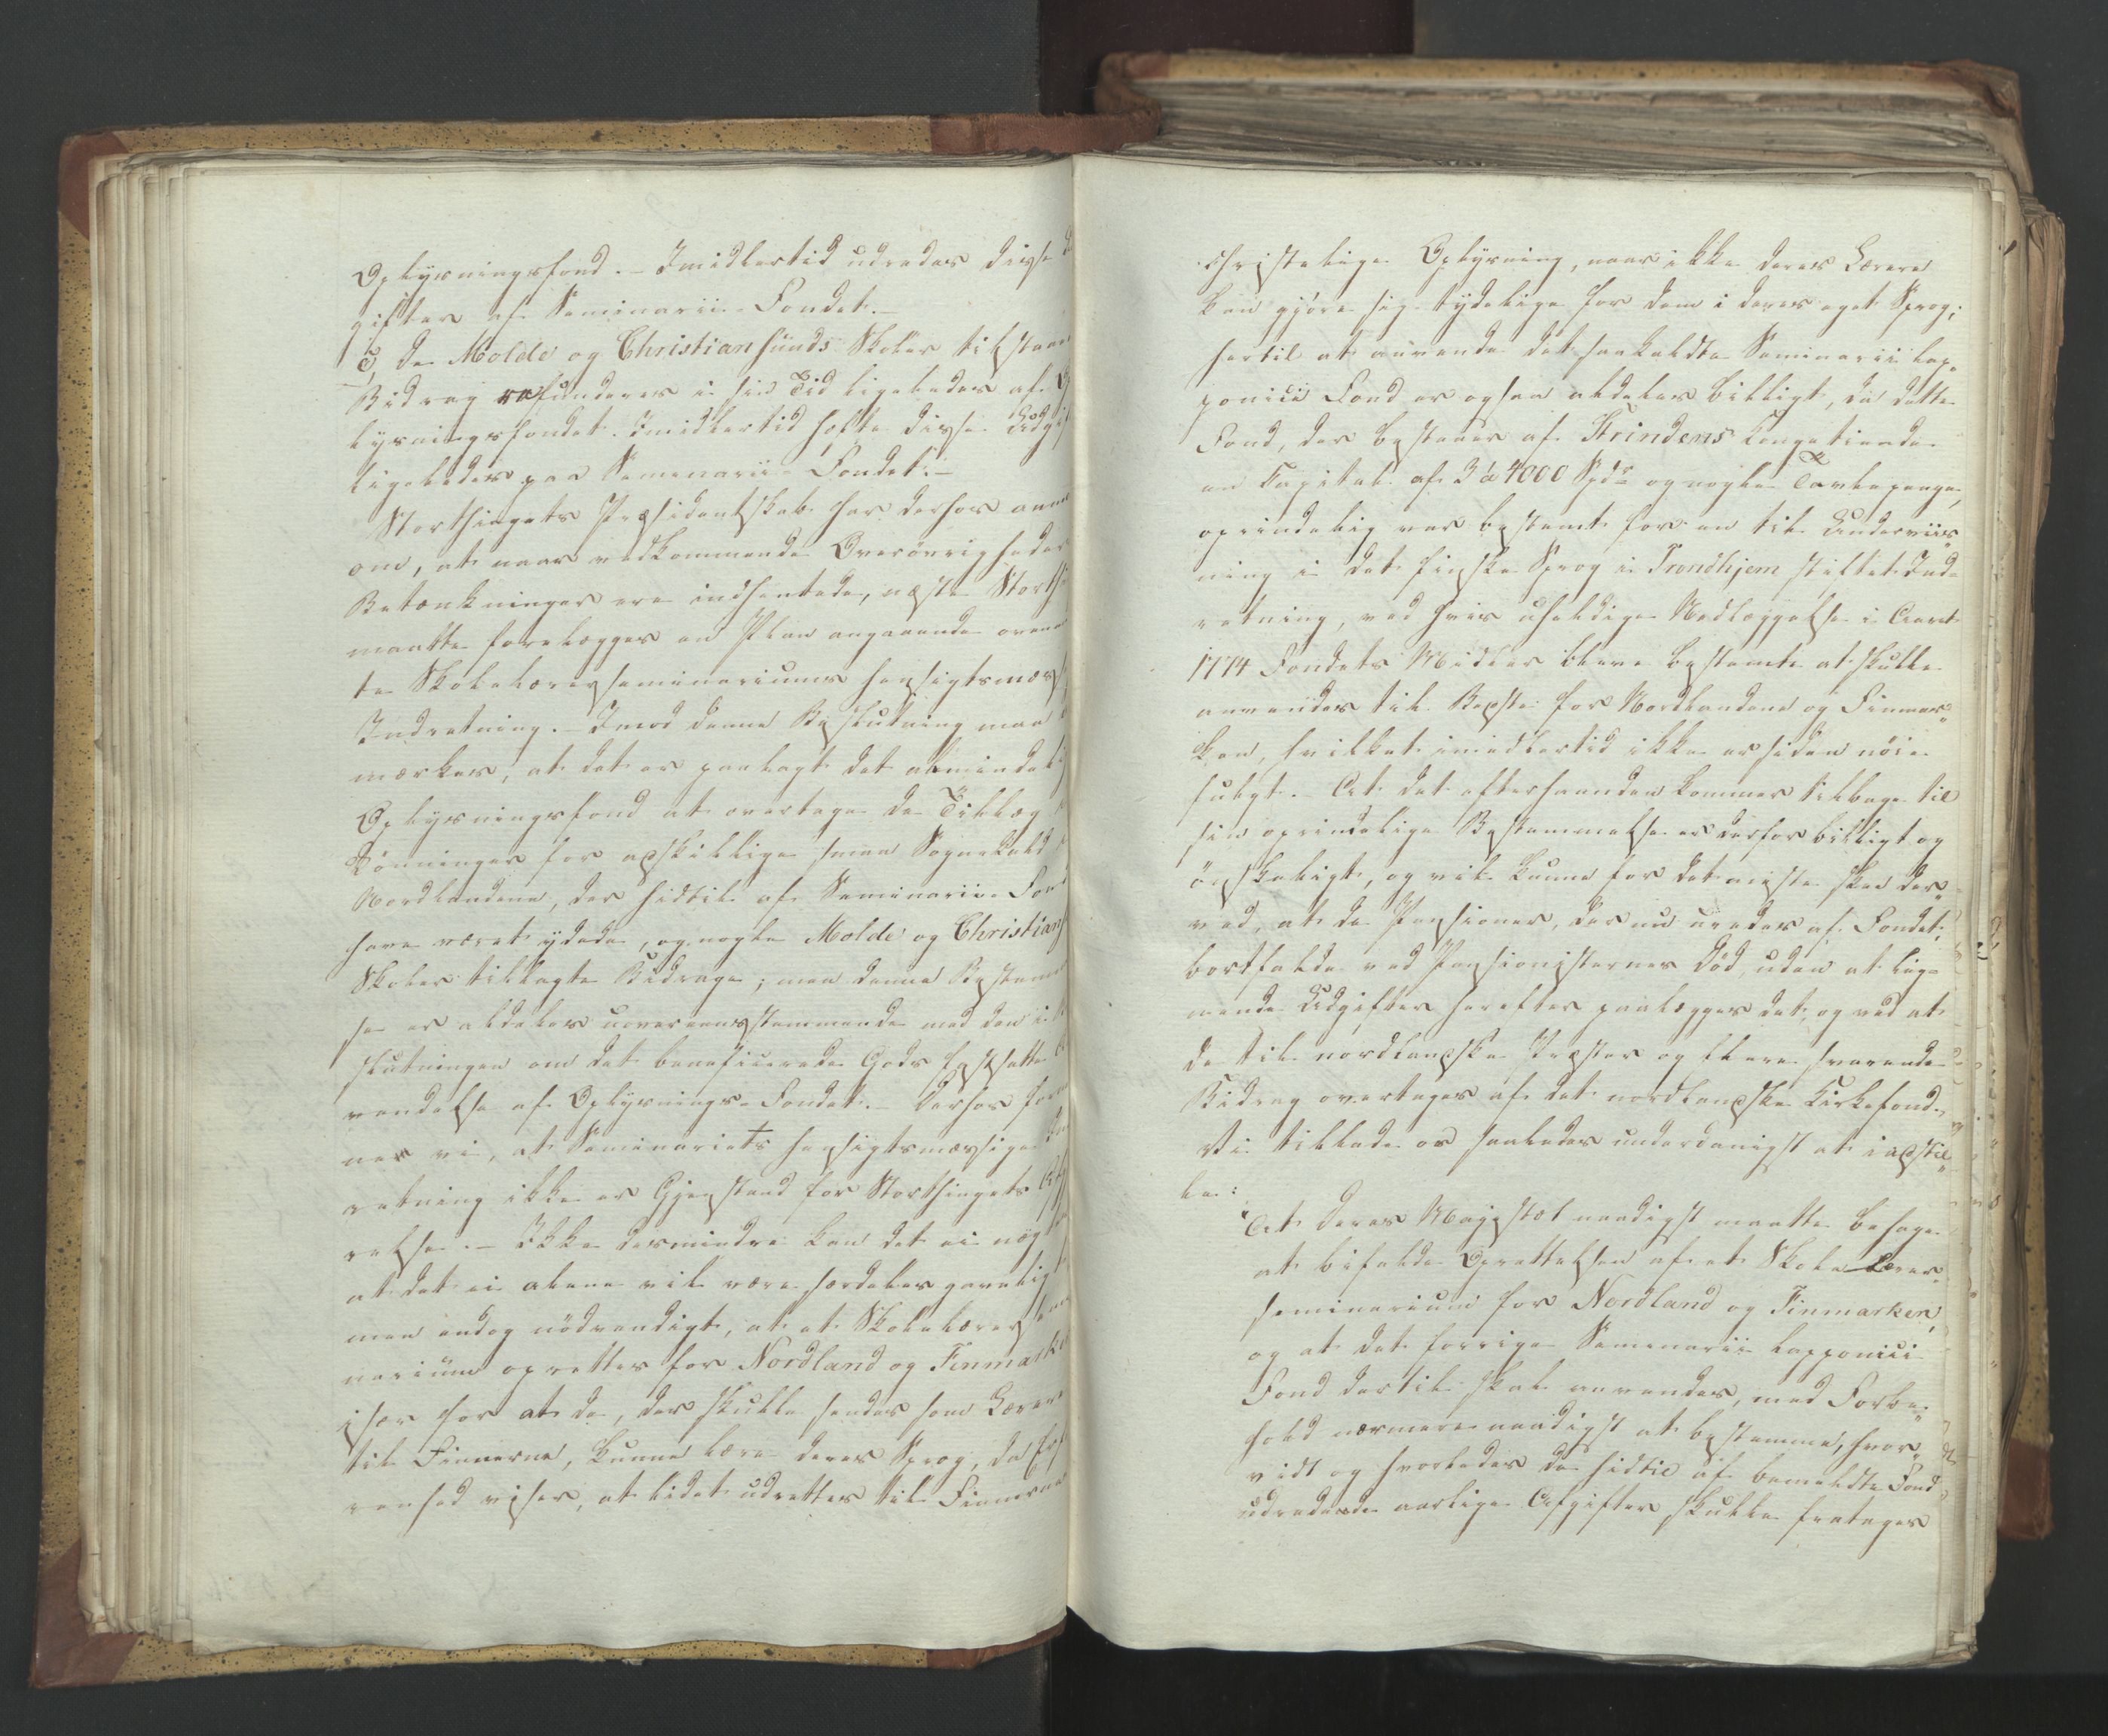 Oplysningsfond. – Imidlertid udredes disse
gifter af Seminarii-Fondet. –
5, De Molde og Christiansunds Skoler tilstaaede
Bidrag refunderes i sin Tid ligeledes af O
lysningsfondet. Imidlertid hefte disse Udgif
ligeledes paa Semenarii-Fondet. –
Storthingets Præsidentskab har derhos anm
om, at naar vedkommende Overøvrigheders
Betænkninger ere indhentede, næste Storthi
maatte forelægges en Plan angaaende ovenn
te Skolelærerseminariums hensigtsmæss
Indretning. – Imod denne Beslutning maa
mærkes, at det er paalagt det almindeli
Oplysningsfond at overtage de Tillæg
Lønninger for adskillige smaa Sognekald
Nordlandene, der hidtil af Seminarii-Fond
have været ydede, og nogle Molde og Christians
Skoler tillagte Bidrage; men denne Bestemm
se er aldeles uovereensstemmende med den i
slutningen om det beneficerede Gods fastsatte
vendelse af Oplysnings-Fondet. – Derhos form
ner vi, at Seminariets hensigtsmæssige
retning ikke er Gjenstand for Storthingets Af
relse. – Ikke desmindre kan det ei nægt
at det ei alene vil være særdeles gavnligt
men endog nødvendigt, at et Skolelærerse
narium oprettes for Nordland og Finmarken
især for at de, der skulle sendes som Lærere
til Finnerne, kunne lære deres Sprog, da
renhed viser, at lidet udrettes til Finnernes
christelige Oplysning, naar ikke deres Lærere
kan gjøre sig tydelige for dem i deres eget Sprog;
hertil at anvende det saakaldte Seminarii lap„
ponici Fond er ogsaa aldeles billigt, da dette
Fond, der bestaaer af Strindens Kongetiende
en Kapital af 3 á 4000 Spdr og nogle Tavlepenge,
oprindelig var bestemt for en til Underviis„
ning i det finske Sprog i Trondhjem stiftet Ind-
retning, ved hvis uheldige Nedlæggelse i Aaret
1774 Fondets Midler bleve bestemte at skulle
anvendes til Bedste for Nordlandene og Finmar„
ken, hvilket imidlertid ikke er siden nøie
fulgt. – At det efterhaanden kommer tilbage til
sin oprindelige Bestemmelse er derfor billigt og
ønskeligt, og vil kunne for det meste skee der„
ved, at de Pensioner, der nu uredes af Fondet,
bortfalde ved Pensionisternes Død, uden at lig-
nende Udgifter herefter paalægges det, og ved at
de til nordlandske Præster og flere svarende
Bidrag overtages af det nordlandske Kirkefond.
Vi tillade os saaledes underdanigst at indstil„
le:
At Deres Majestæt naadigst maatte behage
at bifalde Oprettelsen af et Skolelærer„
seminarium for Nordland og Finmarken,
og at det forrige Semenarii lapponici
Fond dertil skal anvendes, med Forbe„
hold nærmere naadigst at bestemme, hvor„
vidt og hvorledes de hidtil af bemeldte Fond
udredede aarlige Afgifter skulle fratages